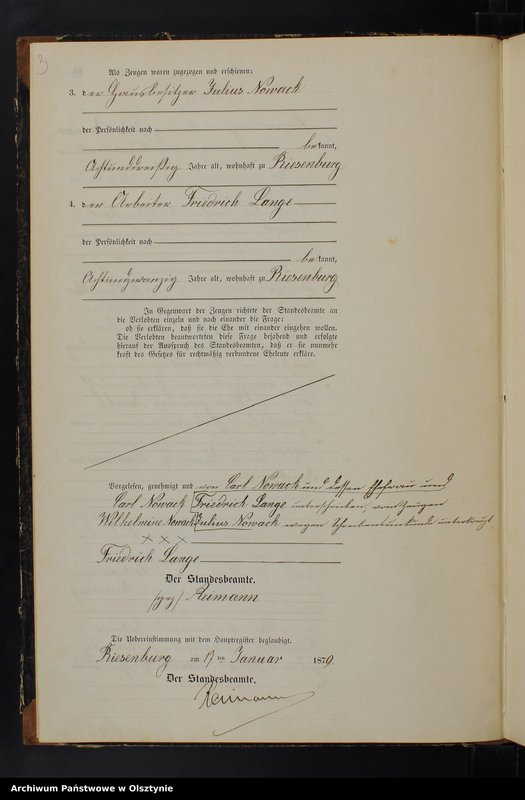 3
Als Zeugen waren zugezogen und erschienen:
3. der Hausbesitzer Julius Nowack
der Persönlichkeit nach
bekannt,
Achtunddreißig Jahre alt, wohnhaft zu Riesenburg
4. der Arbeiter Friedrich Lange
der Persönlichkeit nach
bekannt,
Achtundzwanzig Jahre alt, wohnhaft zu Riesenburg
In Gegenwart der Zeugen richtete der Standesbeamte an
die Verlobten einzeln und nach einander die Frage:
ob sie erklären, daß sie die Ehe mit einander eingehen wollen.
Die Verlobten beantworteten diese Frage bejahend und erfolgte
hierauf der Ausspruch des Standesbeamten, daß er sie nunmehr
kraft des Gesetzes für rechtmäßig verbundene Eheleute erkläre.
Vorgelesen, genehmigt und von Carl Nowack und dessen Ehefrau und
Carl Nowack Friedrich Lange unterschrieben, vom Zeugen
Wilhelmine Nowack Julius Nowack wegen Schreibensunkunde unterkreuzt
XXX
Friedrich Lange
Der Standesbeamte.
(gez) Reimann
Die Uebereinstimmung mit dem Hauptregister beglaubigt.
Riesenburg am 17 ten Januar 1879
Der Standesbeamte.
Reimann
Archiwum Państwowe w Olsztynie